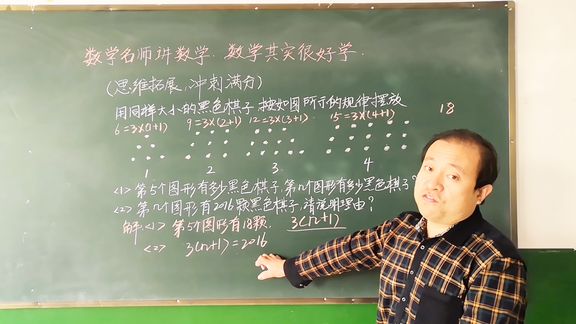 数学名师讲数学，数学其实很好学．
(思维拓展，冲刺满分)
用同样大小的黑色棋子按如图所示的规律摆放
6=3×(1+1) 9=3×(2+1) 12=3×(3+1) 15=3×(4+1) 18
1 2 3 4
<1>第5个图形有多少黑色棋子，第几个图形有多少黑色棋子?
<2>第几个图形有2016颗黑色棋子，请说明理由?
解<1>第5个图形有18颗． 3(n+1)
<2> 3(n+1)=2016